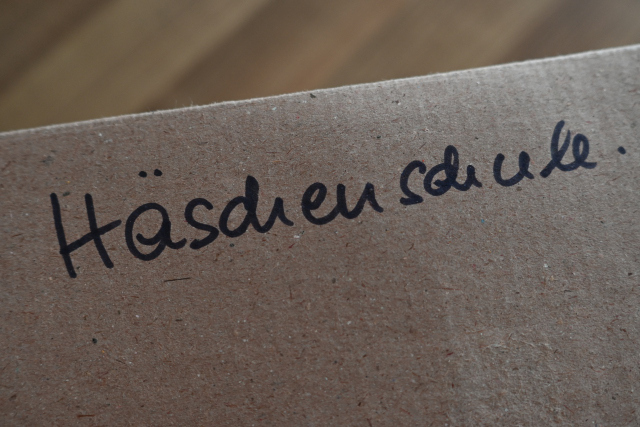 Häschenschule.